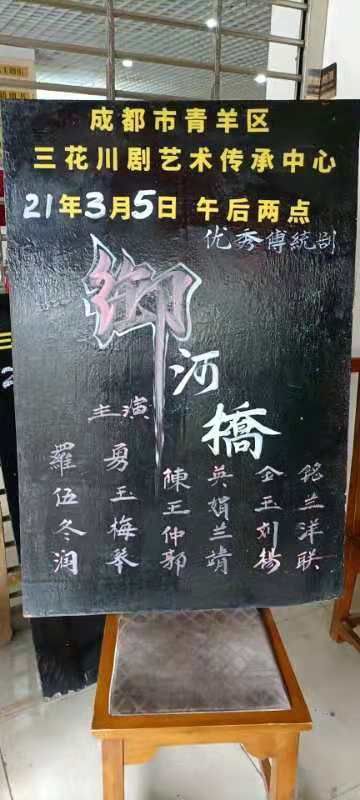 成都市青羊区
三花川剧艺术传承中心
21年3月5日 午后两点
优秀傳統剧
御河橋
主演
羅 勇 陳 英 铭
伍 玉 王 娟 玉 兰
冬 梅 仲 兰 刘 洋
润 琴 郭 靖 杨 联